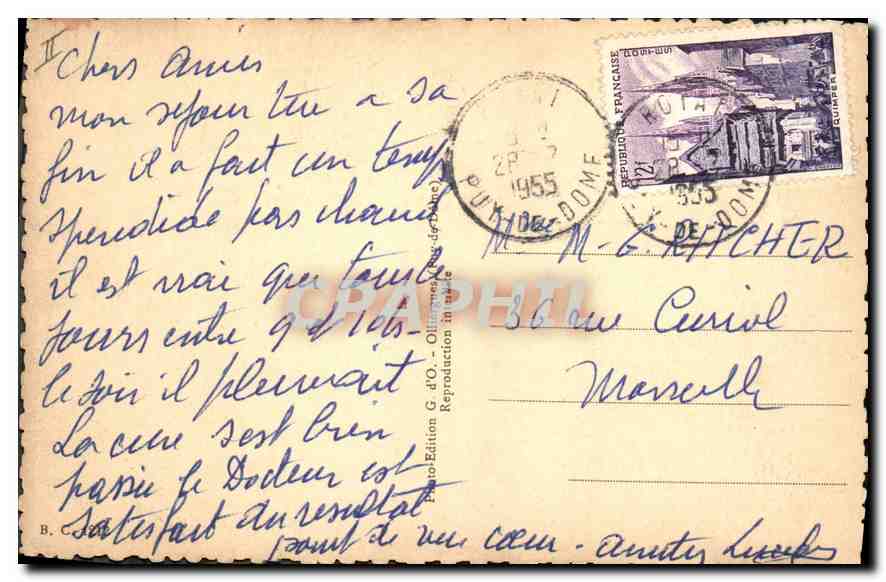 II
Chers Amis
mon séjour tire a sa
fin il a fait un temps
splendide pas chaud
il est vrai que tous les
jours entre 9 et 10h
le soir il pleuvait
La cure s'est bien
passée le Docteur est
satisfait du resultat
point de vue cœur - amitiés
B. C.
Photo-Edition G. d'O. - Olliergues (Puy-de-Dôme)
Reproduction interdite
REPUBLIQUE FRANÇAISE
POSTES
12f
QUIMPER
1955
PUY-DE-DOME
ROYAT
1955
PUY-DE-DOME
M. M. G. RITCHER
36 rue Curiol
Marseille
CRAPHIL